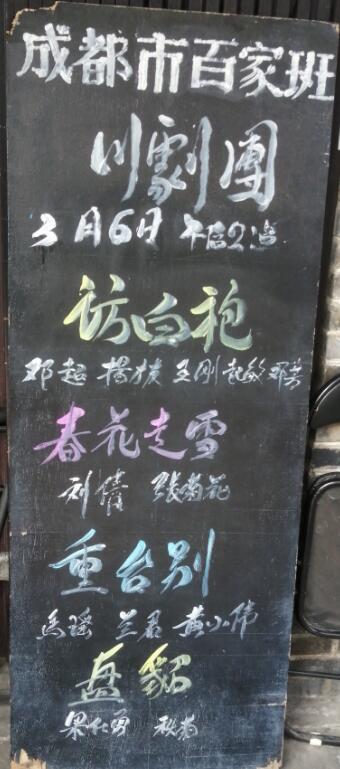 成都市百家班
川劇團
3月6日 午后2点
访白袍
邓超 楊 王刚 邓芳
春花走雪
刘倩 張菊花
重台别
馬瑶 兰君 黄小伟
盘貂
梁仁勇 秋菊